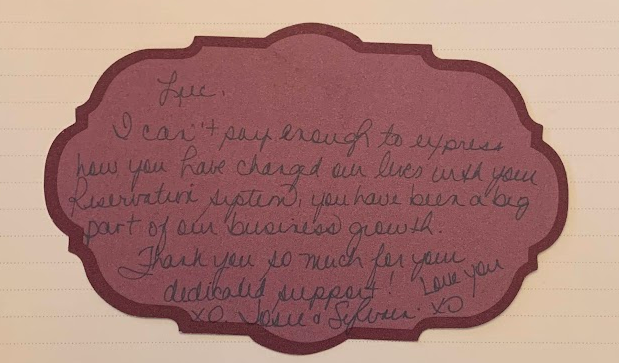 Luc.
I can't say enough to express
how you have changed our lives with your
Reservation system, you have been a big
part of our business growth.
Thank you so much for your
dedicated support! Love you
XO Josée & Sylvain XO